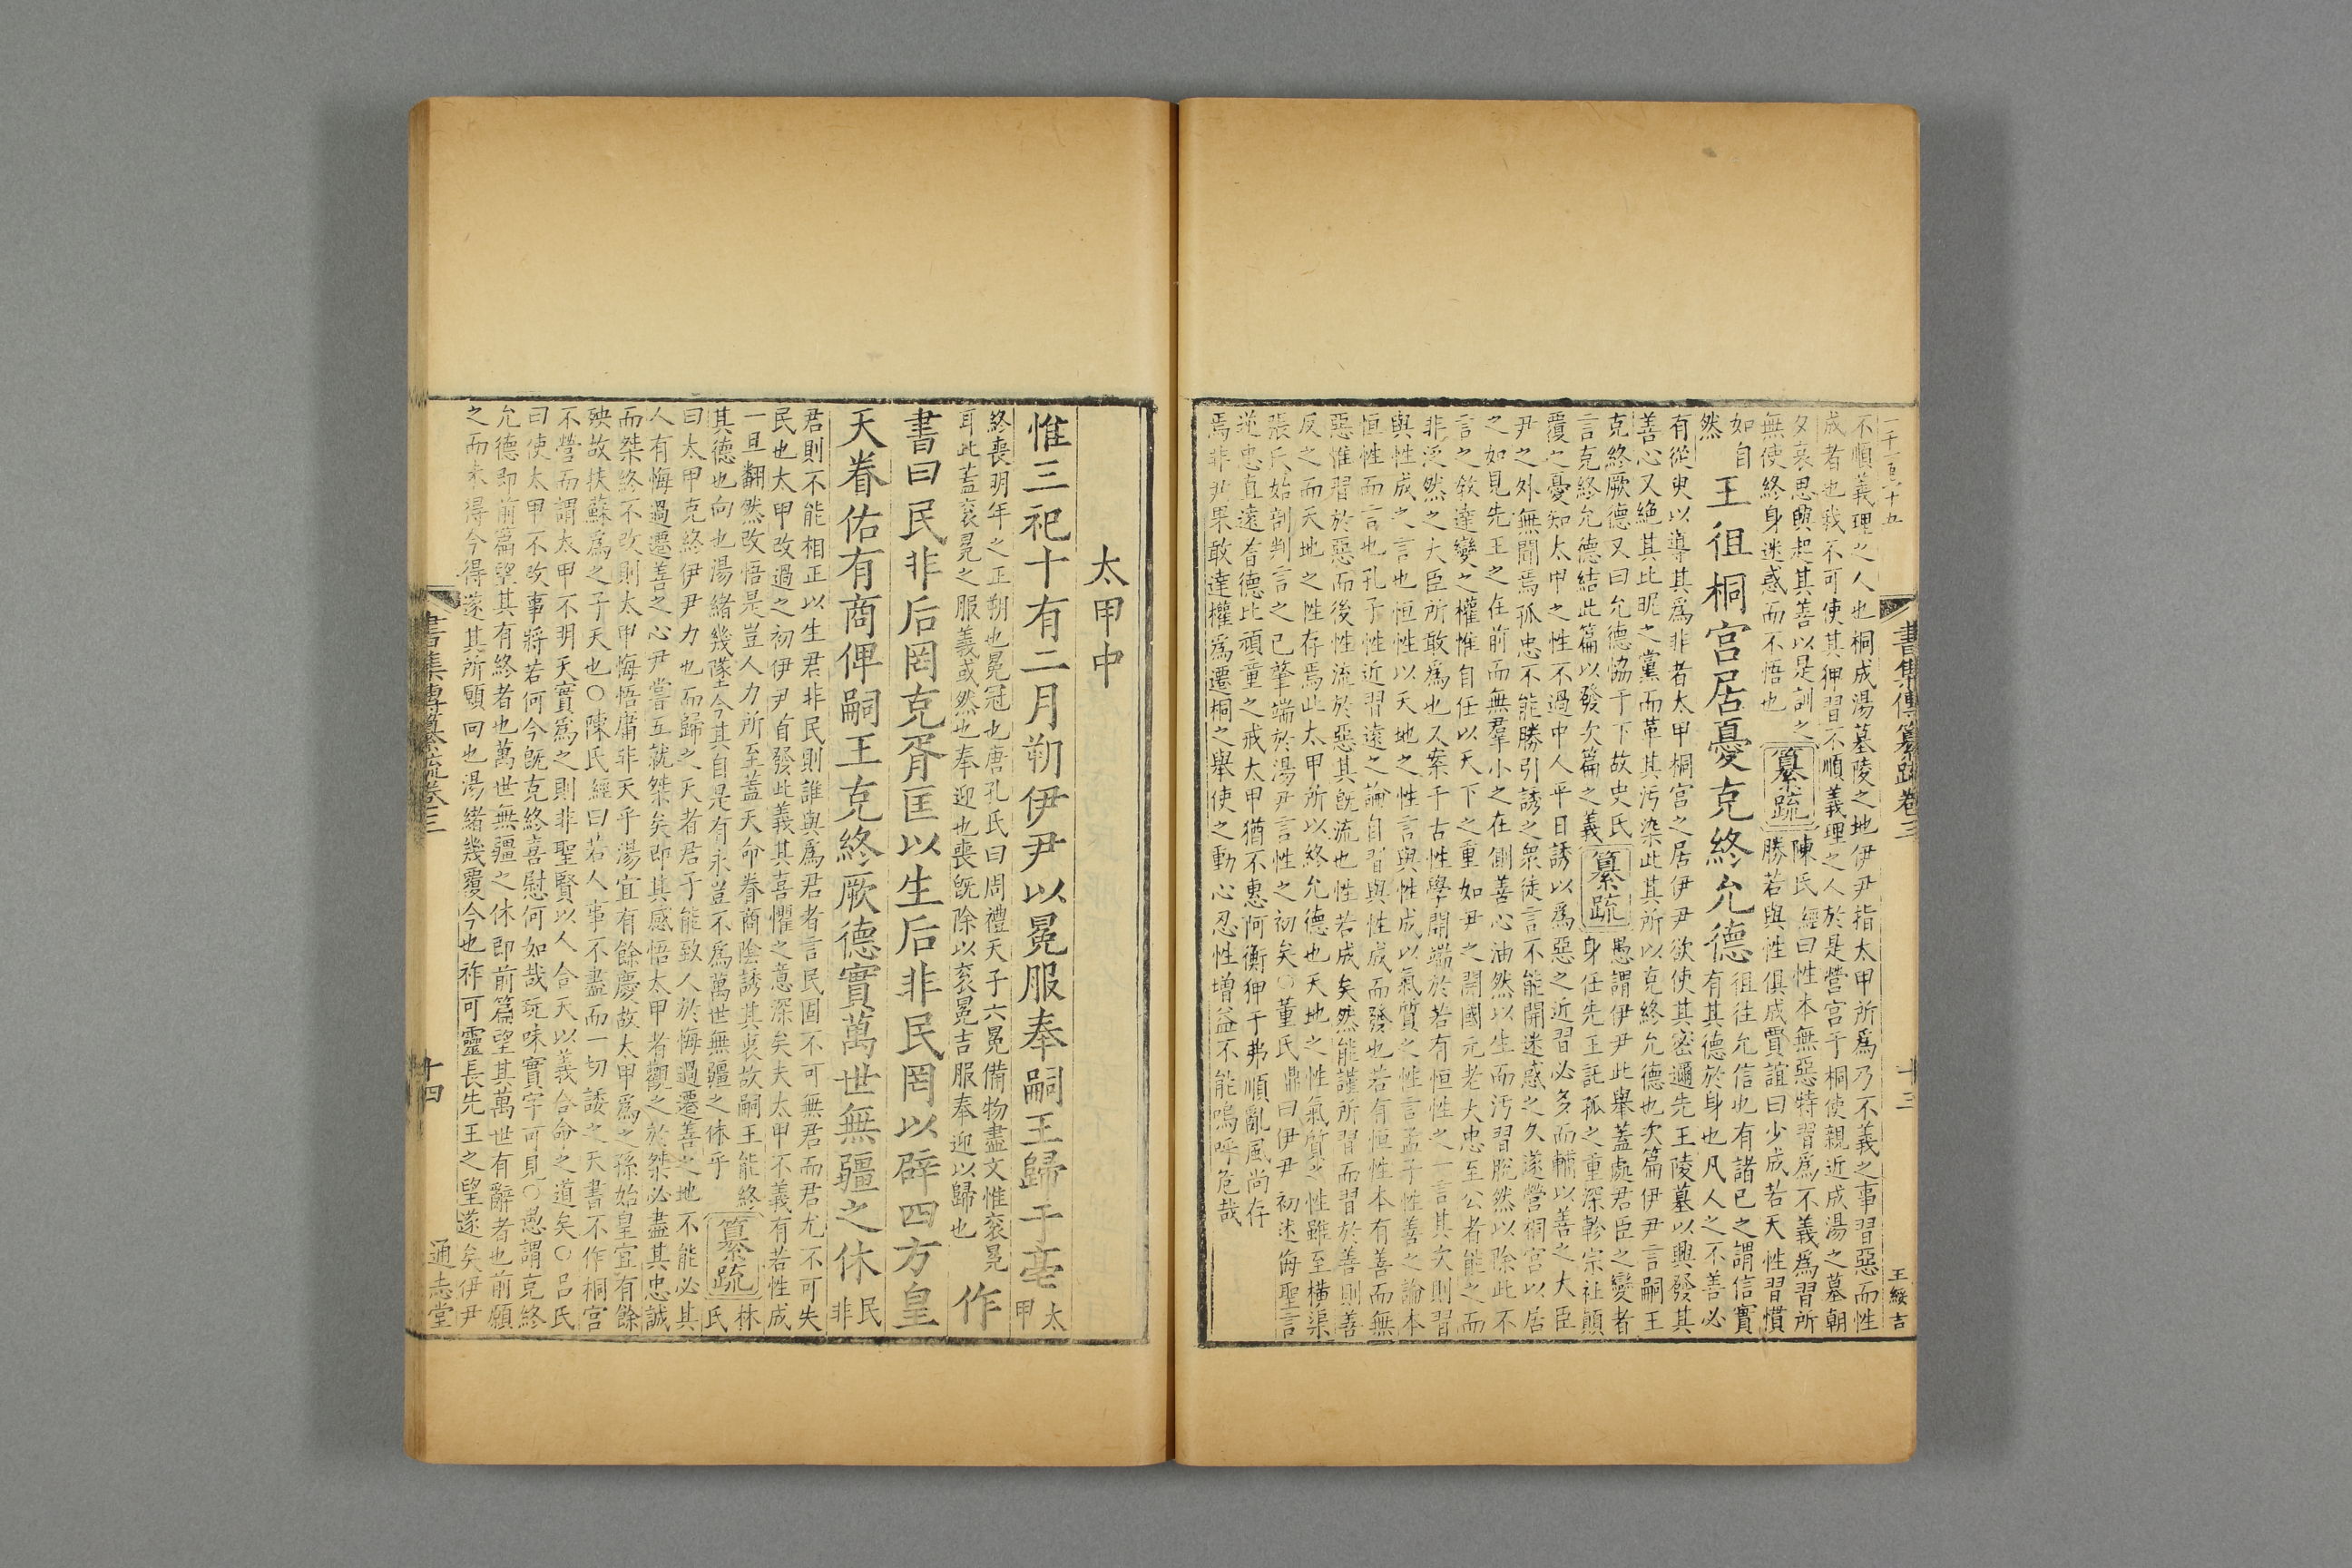 一千一百六十五
書集傳纂疏卷三
十三
王綏吉
不順義理之人也桐成湯墓陵之地伊尹指太甲所為乃不義之事習惡而性
成者也我不可使其狎習不順義理之人於是營宮于桐使親近成湯之墓朝
夕哀思興起其善以是訓之
無使終身迷惑而不悟也
纂疏
陳氏經曰性本無惡特習為不義為習所
勝若與性俱成賈誼曰少成若天性習慣
如自
然
王徂桐宮居憂克終允德
徂往允信也有諸已之謂信實
有其德於身也凡人之不善必
有從臾以導其為非者太甲桐宮之居伊尹欲使其密邇先王陵墓以興發其
善心又絶其比昵之黨而革其污染此其所以克終允德也次篇伊尹言嗣王
克終厥德又曰允德恊于下故史氏
言克終允德結此篇以發次篇之義
纂疏
愚謂伊尹此舉蓋處君臣之變者
身任先王託孤之重深軫宗社顛
覆之憂知太甲之性不過中人平日誘以為惡之近習必多而輔以善之大臣
尹之外無聞焉孤忠不能勝引誘之衆徒言不能開迷惑之久遂營桐宮以居
之如見先王之在前而無羣小之在側善心油然以生而污習脫然以除此不
言之敎達變之權惟自任以天下之重如尹之開國元老大忠至公者能之而
非泛然之大臣所敢為也又案千古性學開端於若有恒性之一言其次則習
與性成之言也恒性以天地之性言與性成以氣質之性言孟子性善之論本
恒性而言也孔子性近習遠之論自習與性成而發也若有恒性本有善而無
惡惟習於惡而後性流於惡其旣流也性若成矣然能謹所習而習於善則善
反之而天地之性存焉此太甲所以終允德也天地之性氣質之性雖至橫渠
張氏始剖判言之已肇端於湯尹言性之初矣○董氏鼎曰伊尹初述侮聖言
逆忠直遠耆德比頑童之戒太甲猶不惠阿衡狎于弗順亂風尚存
焉非尹果敢達權為遷桐之舉使之動心忍性增益不能嗚呼危哉
太甲中
惟三祀十有二月朔伊尹以冕服奉嗣王歸于亳
太
甲
終喪明年之正朔也冕冠也唐孔氏曰周禮天子六冕備物盡文惟衮冕
耳此蓋衮冕之服義或然也奉迎也喪旣除以衮冕吉服奉迎以歸也
作
書曰民非后罔克胥匡以生后非民罔以辟四方皇
天眷佑有商俾嗣王克終厥德實萬世無疆之休
民
非
君則不能相正以生君非民則誰與為君者言民固不可無君而君尤不可失
民也太甲改過之初伊尹首發此義其喜懼之意深矣夫太甲不義有若性成
一旦翻然改悟是豈人力所至蓋天命眷商陰誘其衷故嗣王能終
其德也向也湯緒幾墜今其自是有永豈不為萬世無疆之休乎
纂疏
林
氏
曰太甲克終伊尹力也而歸之天者君子能致人於悔過遷善之地不能必其
人有悔過遷善之心尹嘗五就桀矣即其感悟太甲者觀之於桀必盡其忠誠
而桀終不改則太甲悔悟庸非天乎湯宜有餘慶故太甲為之孫始皇宜有餘
殃故扶蘇為之子天也○陳氏經曰若人事不盡而一切諉之天書不作桐宮
不營而謂太甲不明天實為之則非聖賢以人合天以義合命之道矣○呂氏
曰使太甲不改事將若何今旣克終喜慰何如哉玩味實字可見○愚謂克終
允德即前篇望其有終者也萬世無疆之休即前篇望其萬世有辭者也前願
之而未得今得遂其所願回也湯緒幾覆今也祚可靈長先王之望遂矣伊尹
書集傳纂疏卷三
十四
通志堂